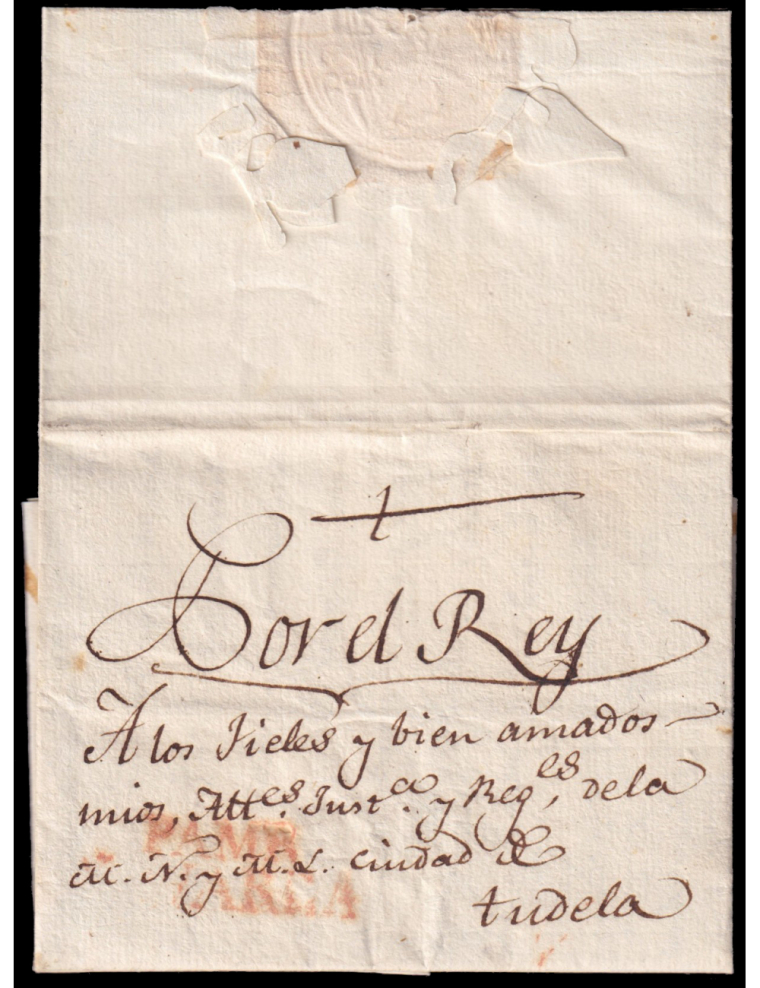 Por el Rey
A los fieles y bien amados
mios, Att.es Just.a y Reg.es, dela
M. N. y M. L. ciudad de
tudela
PAMP